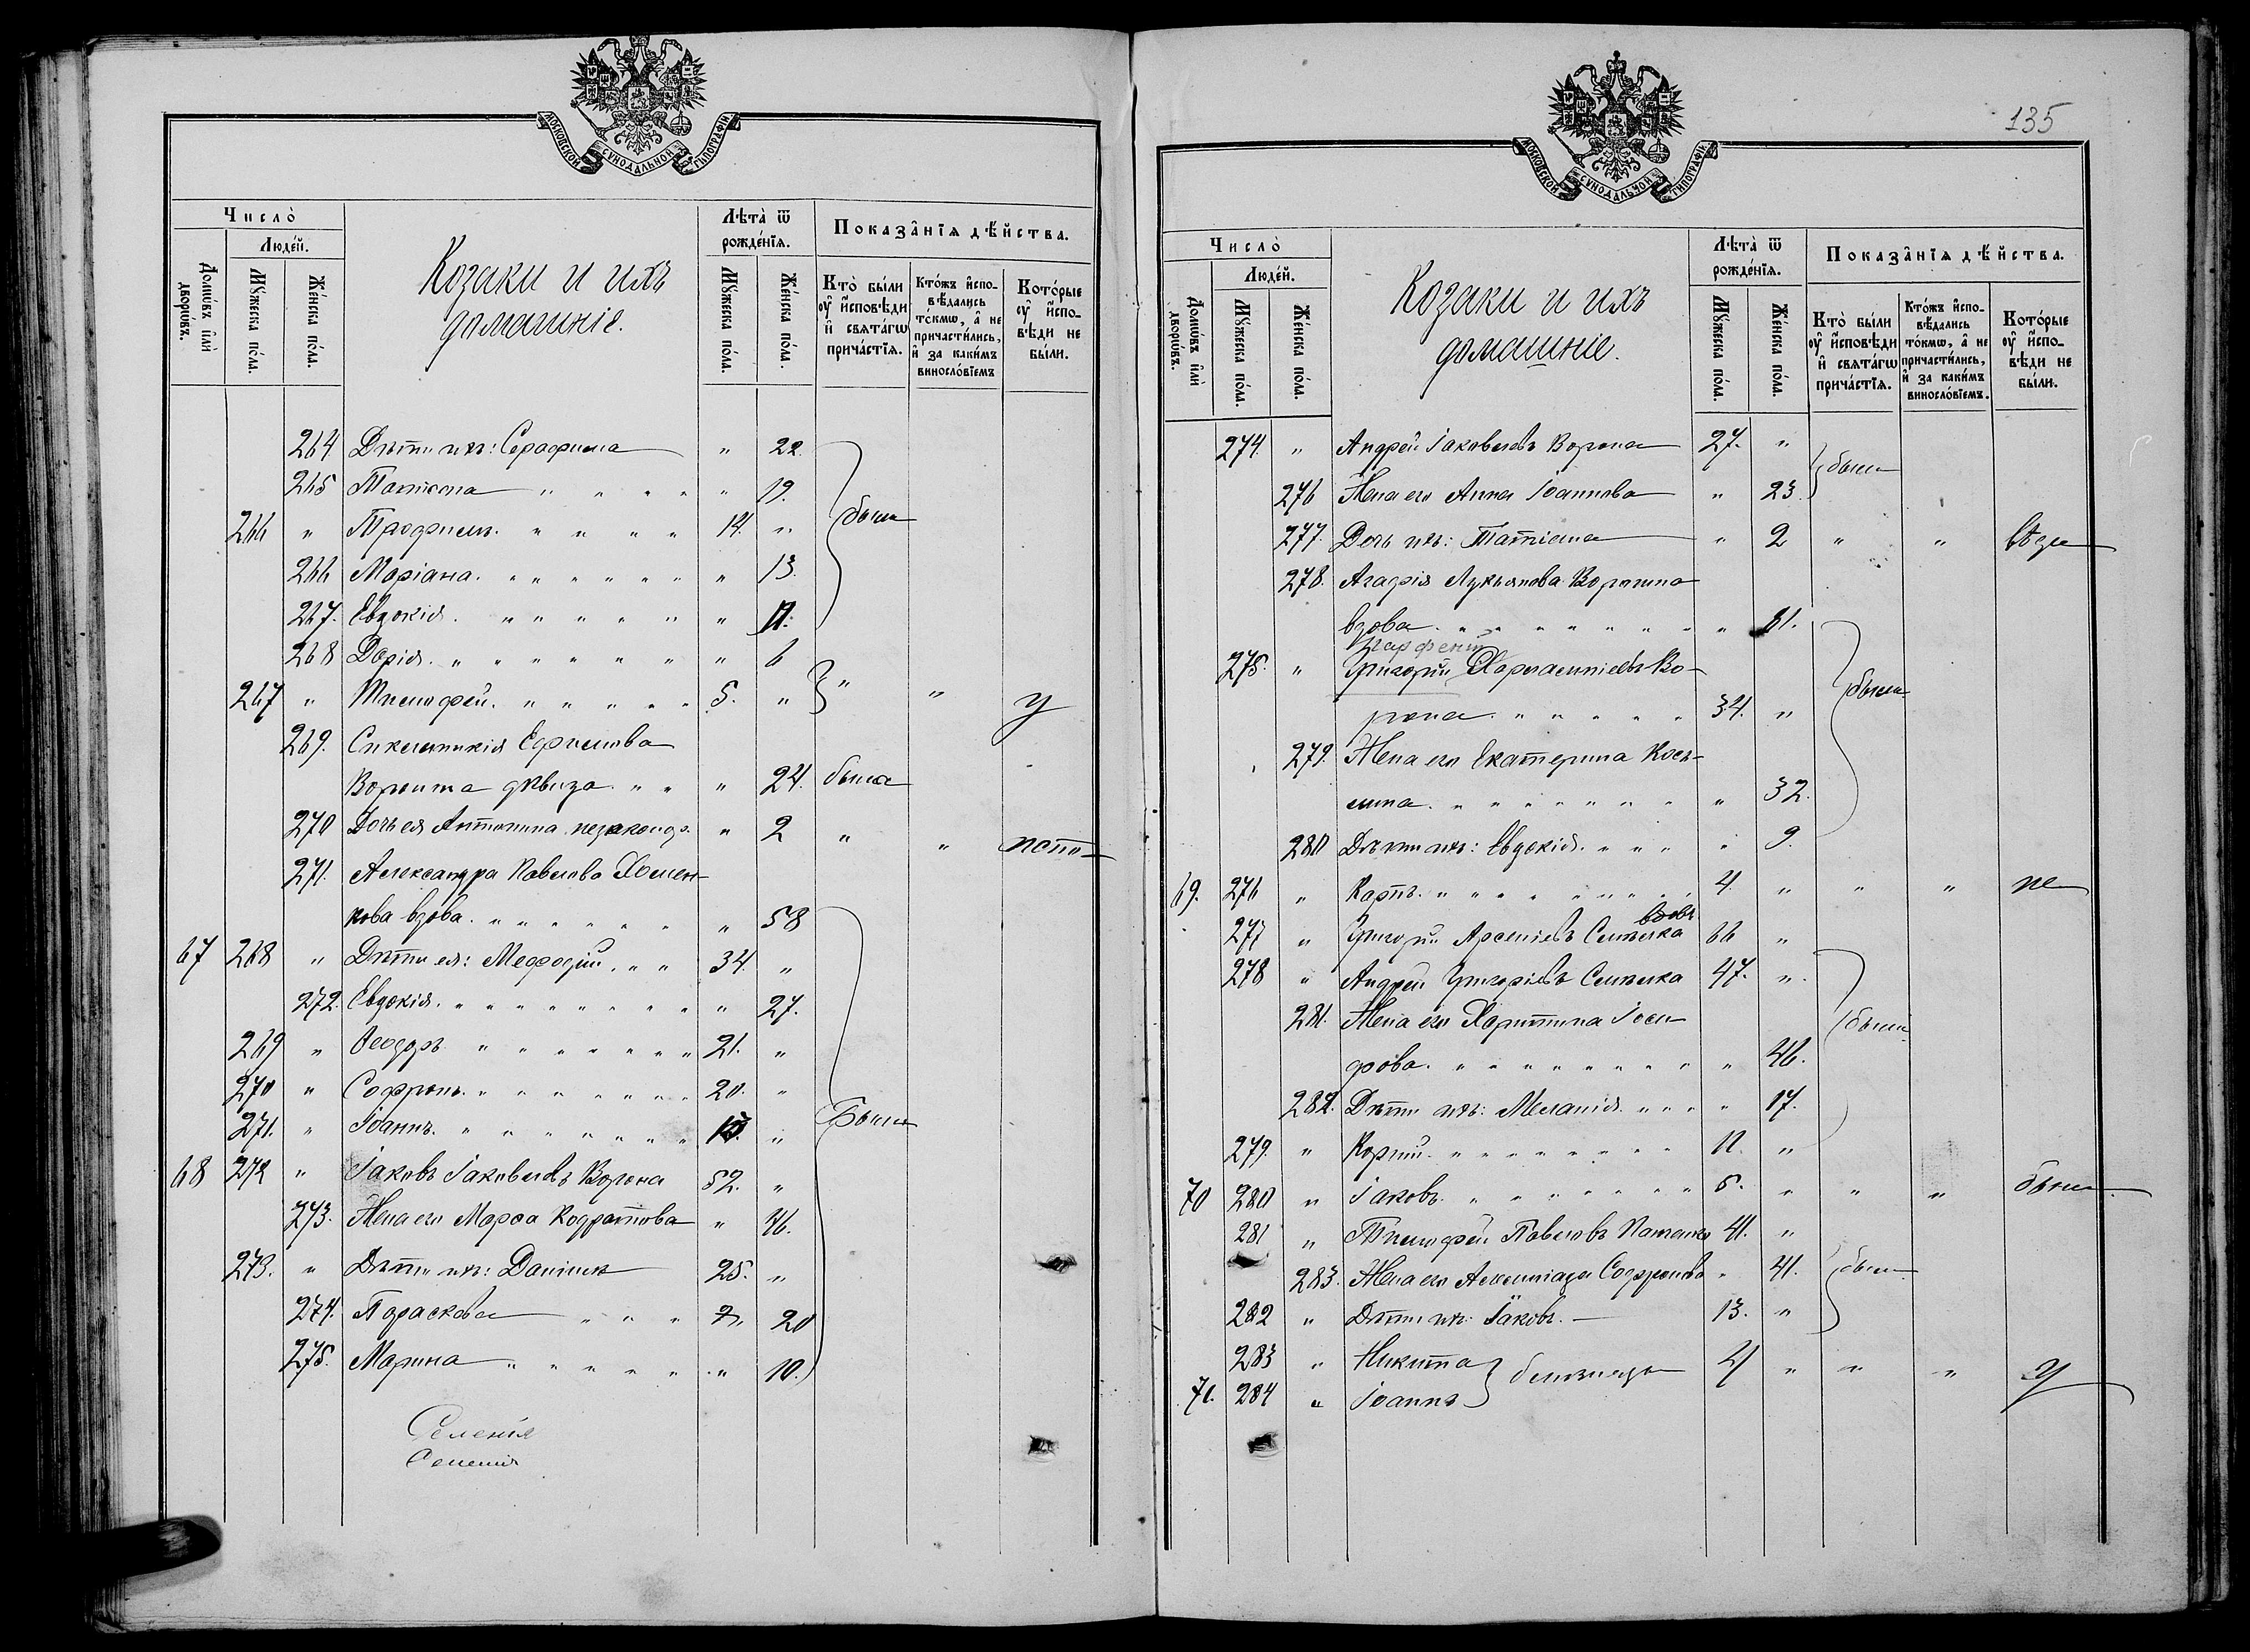 МОСКОВСКОЙ СѴНОДАЛЬНОЙ ТИПОГРАФІИ
Число̀
Люде́й.
Домѡ́въ и҆лѝ дворѡ́въ.
Мꙋ́жеска по́ла.
Же́нска по́ла.
Козаки и ихъ
домашніе.
Лѣта̀ ѿ рожде́нїѧ.
Мꙋ́жеска по́ла.
Же́нска по́ла.
Показа̑нїѧ дѣ́йства.
Кто̀ бы́ли оу҆ и҆сповѣди и҆ свѧта́гѡ прича́стїѧ.
Кто́жъ и҆сповѣ́дались то́кмѡ, а҆ не причасти́лись, и҆ за каки́мъ винослоⷡ́їемъ
Кото́рые оу҆ и҆сповѣди не бы́ли.
264 Дѣти ихъ: Серафима " 22.
265 Татіана " 19.
266 " Трофимъ. 14. " были
266 Маріана. " 13.
267. Евдокія. " 11.
268 Дарія. " 6
267 " Тимофей. 5. " " "
269. Синклитикія Ефимова
Воронина дѣвица. " 24. была
270 Дочь ея Антонина незаконор. " 2 " "
271. Александра Павлова Хомен-
кова вдова. " 58
67 268 " Дѣти ея: Мефодій. 34. "
272. Евдокія. " 27.
269 " Ѳеодоръ 21. "
270 " Софронъ. 20. "
271. " Іоаннъ. "  Были
68 272 " Іаковъ Іаковлевъ Ворона 52. "
273. Жена его Марѳа Кодратова " 46.
273. " Дѣти ихъ: Даніилъ 25. "
274. Параскева 20
275. Марина " 10.
Селенія
Селенія
135
МОСКОВСКОЙ СѴНОДАЛЬНОЙ ТИПОГРАФІИ
Число̀
Люде́й.
Домѡ́въ и҆лѝ дворѡ́въ.
Мꙋ́жеска по́ла.
Же́нска по́ла.
Козаки и ихъ
домашніе.
Лѣта̀ ѿ рожде́нїѧ.
Мꙋ́жеска по́ла.
Же́нска по́ла.
Показа̑нїѧ дѣ́йства.
Кто̀ бы́ли оу҆ и҆сповѣди и҆ свѧта́гѡ прича́стїѧ.
Кто́жъ и҆сповѣ́дались то́кмѡ, а҆ не причасти́лись, и҆ за каки́мъ винослоⷡ́їемъ.
Кото́рые оу҆ и҆сповѣди не бы́ли.
274. " Андрей Іаковлевъ Ворона 27. " были
276 Жена его Анна Іоаннова " 23.
277. Дочь ихъ: Татіана " 2 " "
278. Агафія Лукьянова Воронина
вдова. " 61.
Парфеній
275. " Григорій Харлампіевъ Во-
рона. 34. " были
279. Жена его Екатерина Кось-
мина. " 32.
280 Дѣти ихъ: Евдокія. " 9.
69. 276 " Карпъ. 4. " " " не
вдовъ
277 " Григорій Арсеніевъ Семъяка 66 "
278 " Андрей Григоріевъ Семъяка 47. "
281. Жена его Харитина Іоси-
фова. " 46. были
282. Дѣти ихъ: Меланія. " 17.
279. " Корній. 11. "
70 280 " Іаковъ. 5. " " " были
281 " Тимофей Павловъ 41. "
283. Жена его Александра Софронова " 41. были
282 " Дѣти ихъ: Іаковъ. 13. "
283 " Никита
71. 284 " Іоаннъ близнецы " " "